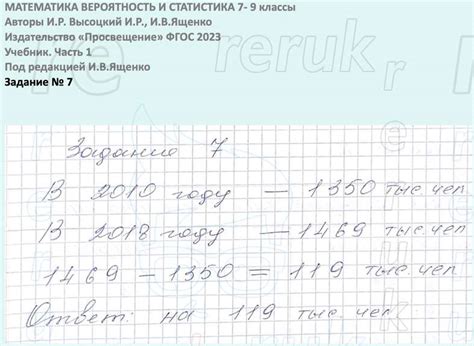 МАТЕМАТИКА ВЕРОЯТНОСТЬ И СТАТИСТИКА 7- 9 классы
Авторы И.Р. Высоцкий И.Р., И.В.Ященко
Издательство «Просвещение» ФГОС 2023
Учебник. Часть 1
Под редакцией И.В.Ященко
Задание № 7
reruk
Задание 7
В 2010 году — 1350 тыс. чел.
В 2018 году — 1469 тыс. чел.
1469 – 1350 = 119 тыс. чел
Ответ: на 119 тыс. чел.